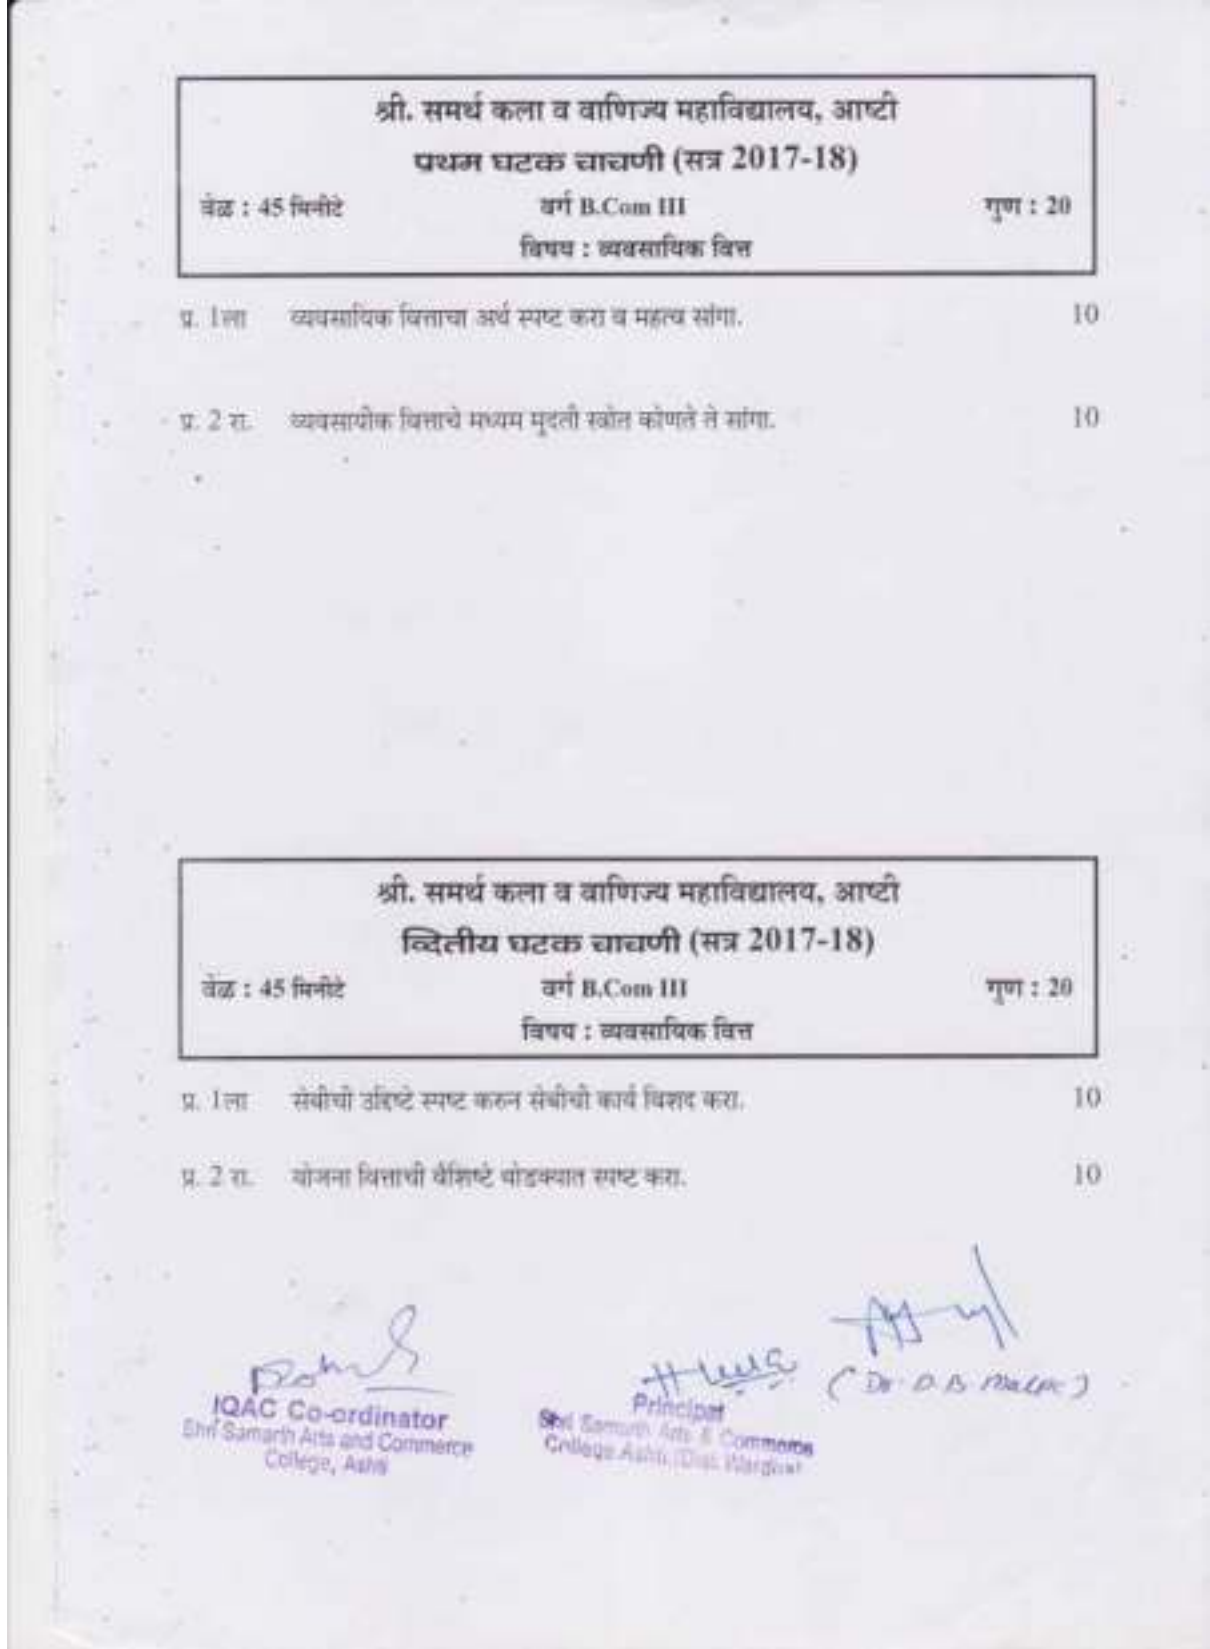 श्री. समर्थ कला व वाणिज्य महाविद्यालय, आष्टी
प्रथम घटक चाचणी (सत्र 2017-18)
वेळ : 45 मिनीटे वर्ग B.Com III गुण : 20
विषय : व्यवसायिक वित्त
प्र. 1ला व्यवसायिक वित्ताचा अर्थ स्पष्ट करा व महत्व सांगा. 10
प्र. 2 रा. व्यवसायीक वित्ताचे मध्यम मुदती स्त्रोत कोणते ते सांगा. 10
श्री. समर्थ कला व वाणिज्य महाविद्यालय, आष्टी
व्दितीय घटक चाचणी (सत्र 2017-18)
वेळ : 45 मिनीटे वर्ग B.Com III गुण : 20
विषय : व्यवसायिक वित्त
प्र. 1ला सेबीची उद्दिष्टे स्पष्ट करुन सेबीची कार्य विशद करा. 10
प्र. 2 रा. योजना वित्ताची वैशिष्टे थोडक्यात स्पष्ट करा. 10
IQAC Co-ordinator
Shri Samarth Arts and Commerce
College, Ashti
Principal
Shri Samarth Arts & Commerce
College Ashti (Dist. Wardha)